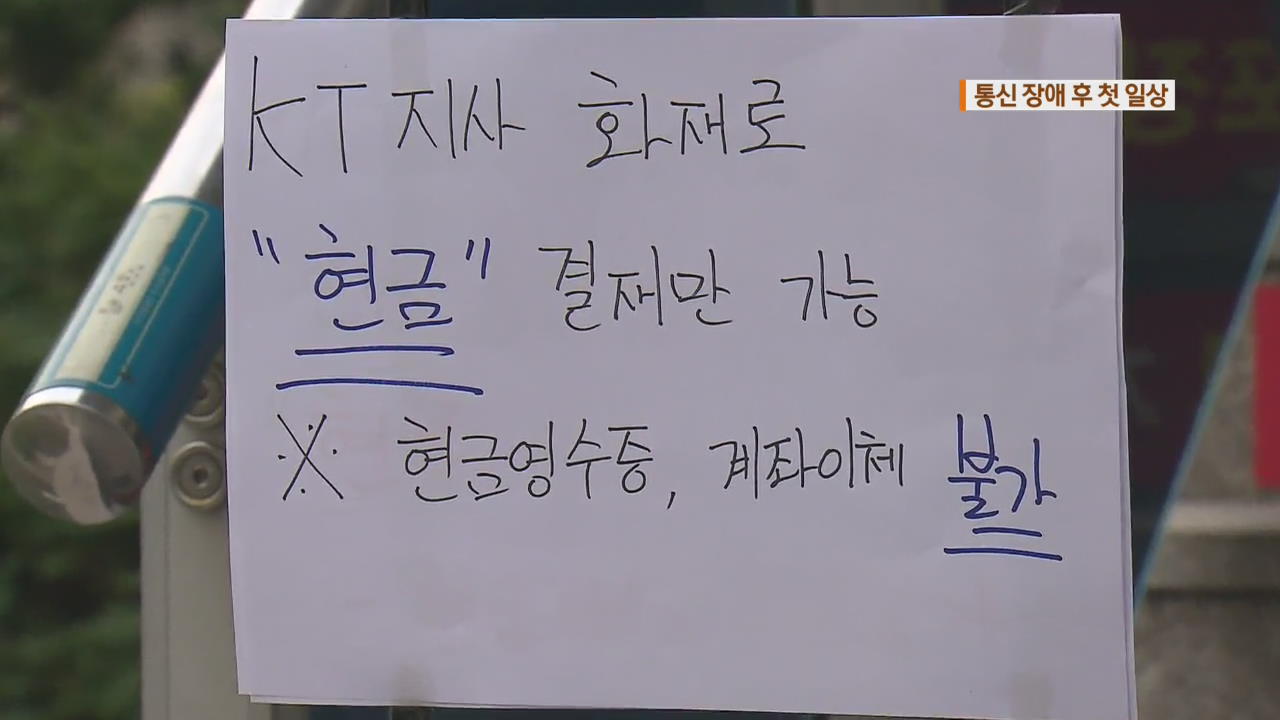 통신 장애 후 첫 일상
KT 지사 화재로
"현금" 결재만 가능
※ 현금영수증, 계좌이체 불가